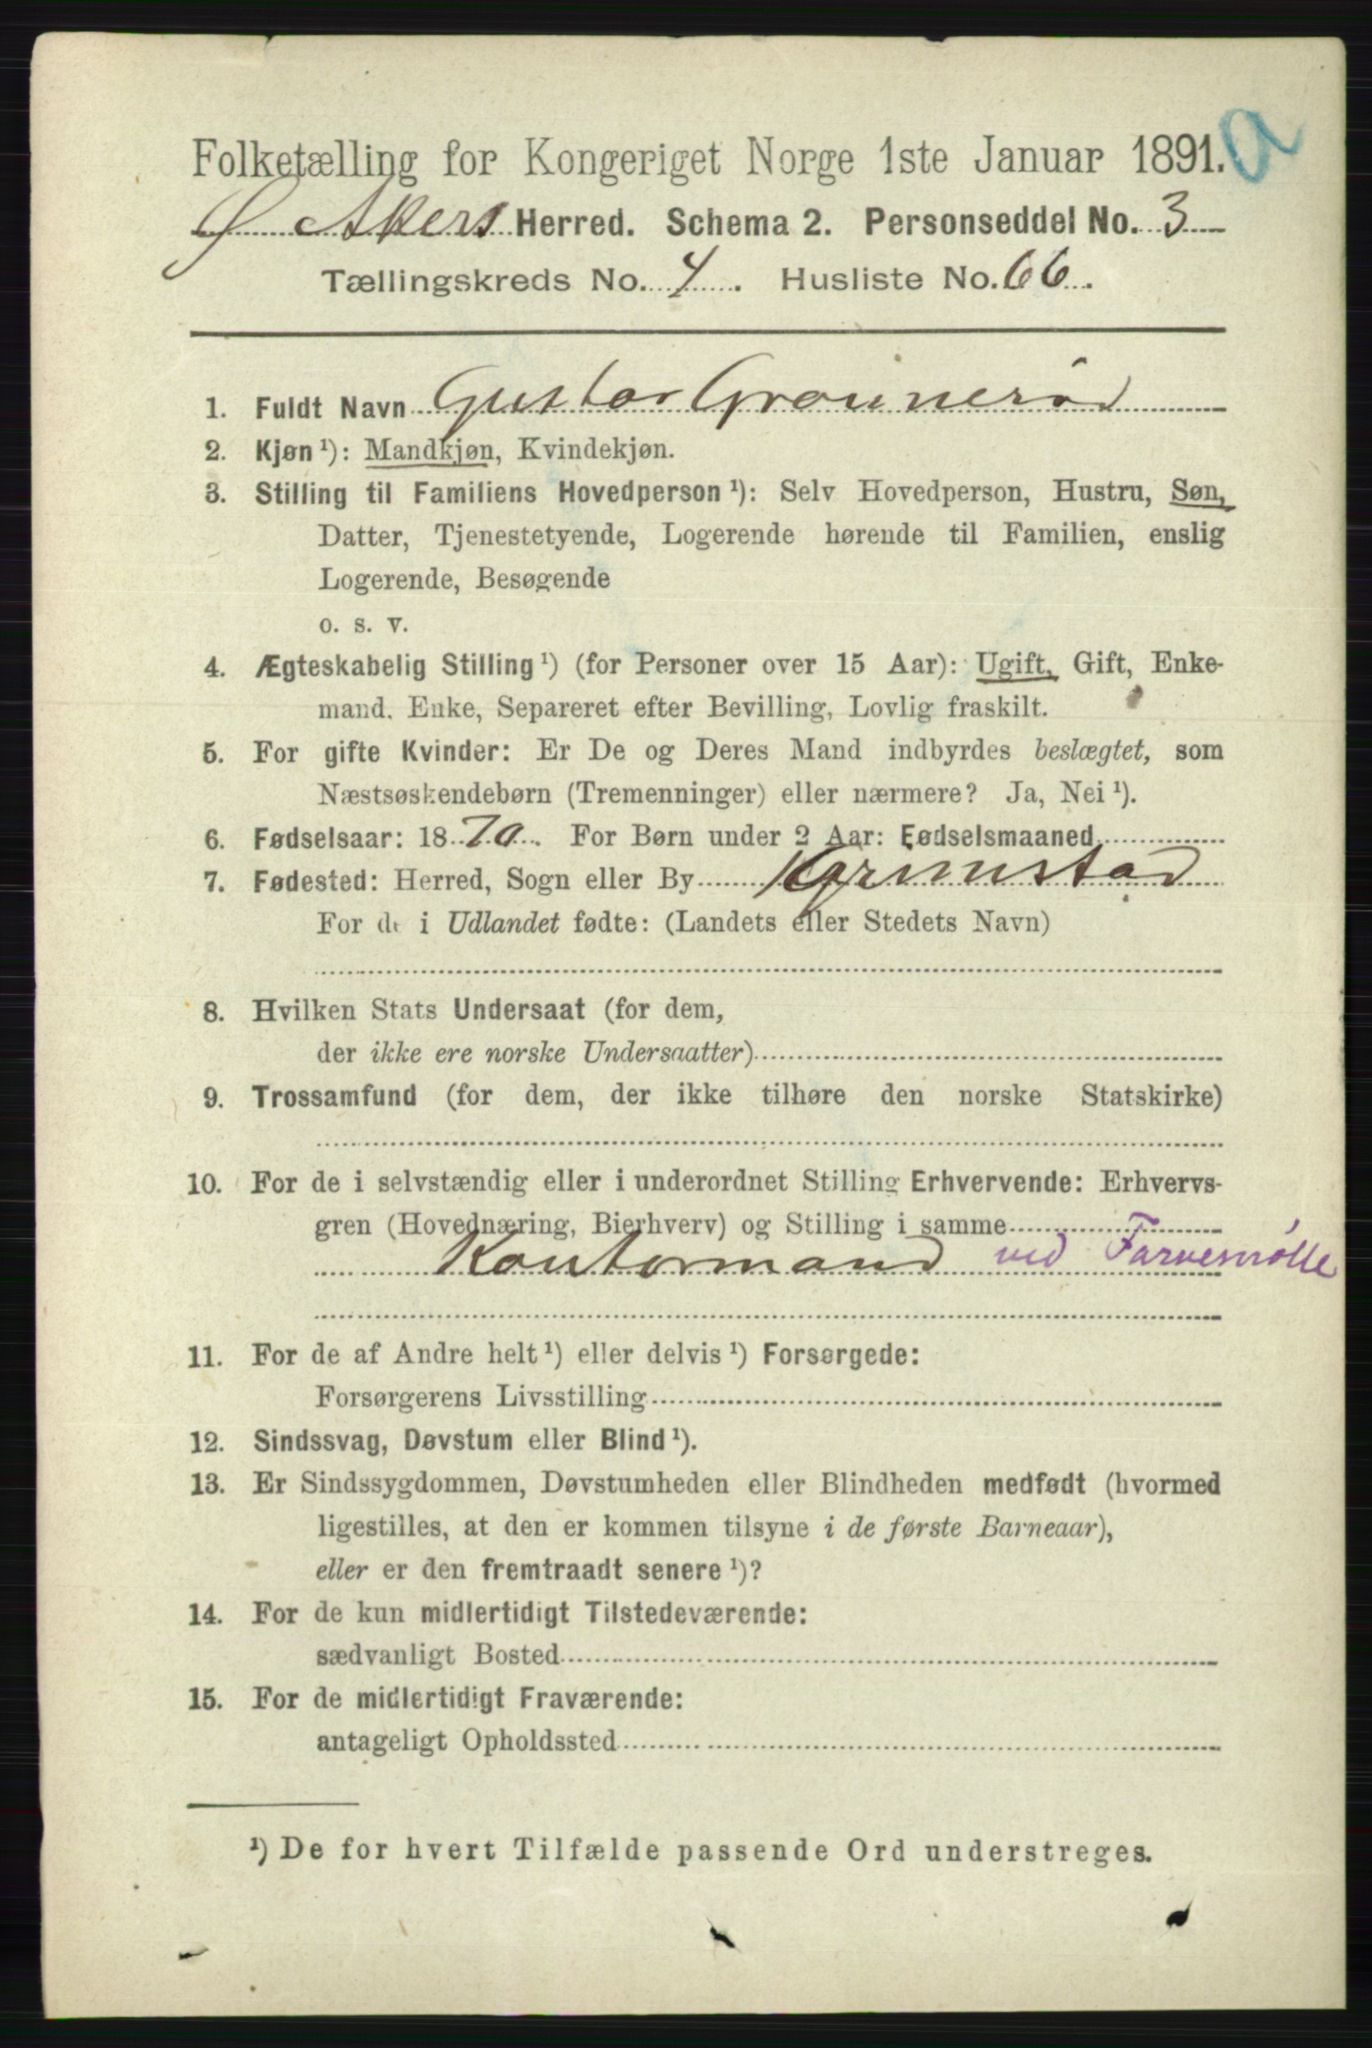 a
Folketælling for Kongeriget Norge 1ste Januar 1891.
Ø Akers Herred. Schema 2. Personseddel No. 3
Tællingskreds No. 4. Husliste No. 66.
1. Fuldt Navn Gustav Grounerød
2. Kjøn ¹): Mandkjøn, Kvindekjøn.
3. Stilling til Familiens Hovedperson ¹): Selv Hovedperson, Hustru, Søn,
Datter, Tjenestetyende, Logerende hørende til Familien, enslig
Logerende, Besøgende
o. s. v.
4. Ægteskabelig Stilling ¹) (for Personer over 15 Aar): Ugift, Gift, Enke-
mand, Enke, Separeret efter Bevilling, Lovlig fraskilt.
5. For gifte Kvinder: Er De og Deres Mand indbyrdes beslægtet, som
Næstsøskendebørn (Tremenninger) eller nærmere? Ja, Nei ¹).
6. Fødselsaar: 1870. For Børn under 2 Aar: Fødselsmaaned
7. Fødested: Herred, Sogn eller By Grimstad
For de i Udlandet fødte: (Landets eller Stedets Navn)
8. Hvilken Stats Undersaat (for dem,
der ikke ere norske Undersaatter)
9. Trossamfund (for dem, der ikke tilhøre den norske Statskirke)
10. For de i selvstændig eller i underordnet Stilling Erhvervende: Erhvervs-
gren (Hovednæring, Bierhverv) og Stilling i samme
Kontormand ved Farvemølle
11. For de af Andre helt ¹) eller delvis ¹) Forsørgede:
Forsørgerens Livsstilling
12. Sindssvag, Døvstum eller Blind ¹).
13. Er Sindssygdommen, Døvstumheden eller Blindheden medfødt (hvormed
ligestilles, at den er kommen tilsyne i de første Barneaar),
eller er den fremtraadt senere ¹)?
14. For de kun midlertidigt Tilstedeværende:
sædvanligt Bosted
15. For de midlertidigt Fraværende:
antageligt Opholdssted
¹) De for hvert Tilfælde passende Ord understreges.